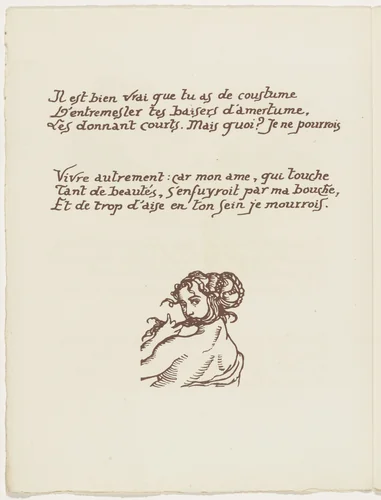 Il est bien vrai que tu as de coustume
D'entremesler tes baisers d'amertume,
Les donnant courts. Mais quoi? Je ne pourrois
Vivre autrement: car mon ame, qui touche
Tant de beautés, s'enfuyroit par ma bouche,
Et de trop d'aise en ton sein je mourrois.